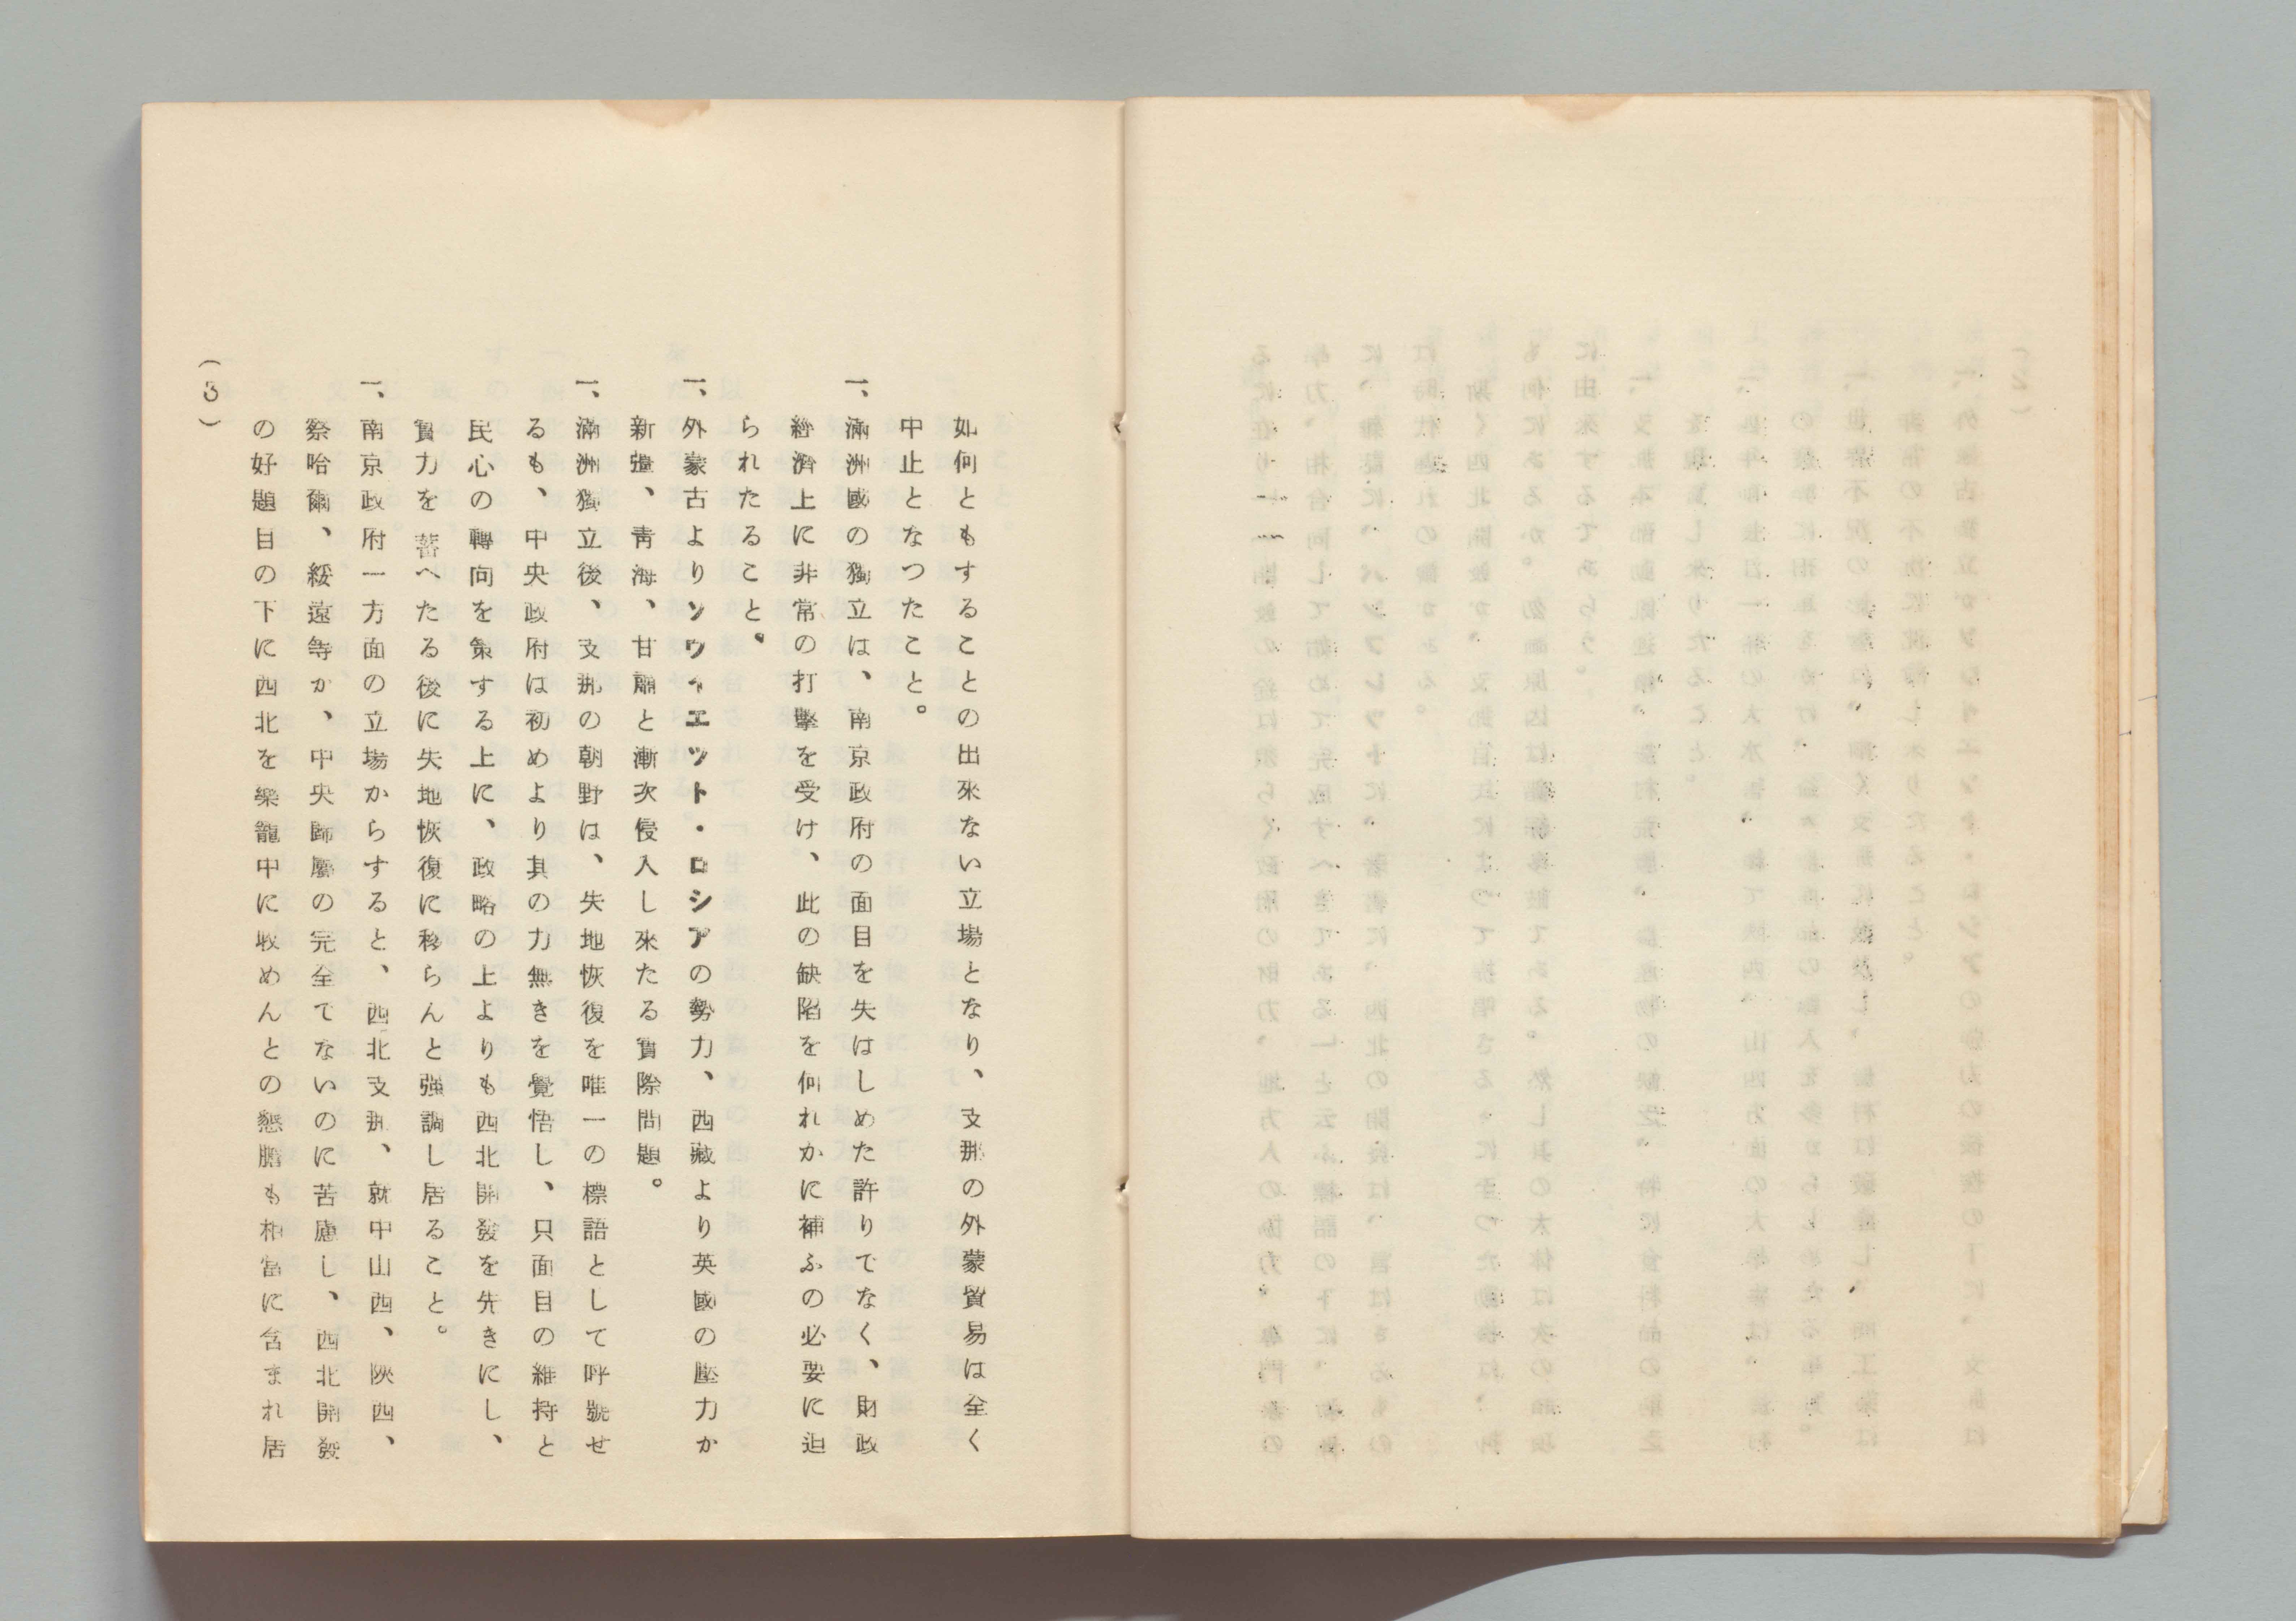 如何ともすることの出來ない立場となり、支那の外蒙貿易は全く
中止となつたこと。
一、滿洲國の獨立は、南京政府の面目を失はしめた許りでなく、財政
經濟上に非常の打擊を受け、此の缺陷を何れかに補ふの必要に迫
られたること。
一、外蒙古よりソウィエット・ロシアの勢力、西藏より英國の壓力か
新疆、靑海、甘肅と漸次侵入し來たる實際問題。
一、滿洲獨立後、支那の朝野は、失地恢復を唯一の標語として呼號せ
るも、中央政府は初めより其の力無きを覺悟し、只面目の維持と
民心の轉向を策する上に、政略の上よりも西北開發を先きにし、
實力を蓄へたる後に失地恢復に移らんと强調し居ること。
一、南京政府一方面の立場からすると、西北支那、就中山西、陝西、
察哈爾、綏遠等か、中央歸屬の完全でないのに苦慮し、西北開發
の好題目の下に西北を樂籠中に收めんとの懸膽も相當に含まれ居
(3)